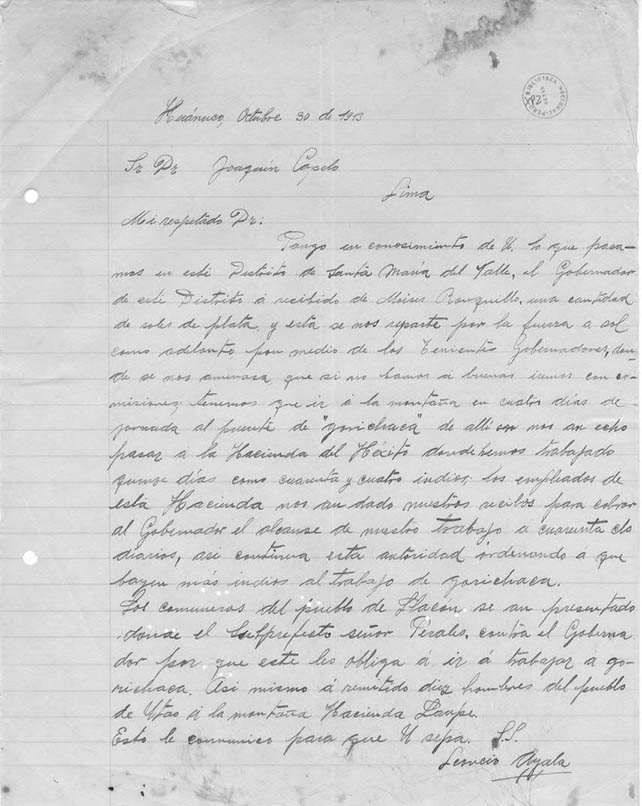 BIBLIOTECA NACIONAL
Huánuco, Octubre 30 de 1913
Sr Dr Joaquín Capelo
Lima
Mi respetado Dr:
Pongo en conosimiento de U. lo que pasa-
mos en este Distrito de Santa María del Valle, el Gobernador
de este Distrito á recibido de Moises Ronquillo, una cantidad
de soles de plata, y esta se nos reparte por la fuerza a sol
como adelanto por medio de los Tenientes Gobernadores, don-
de se nos amenasa, que si no bamos á buenas iremos con co-
misiones; tenemos que ir á la montaña en cuatro días de
jornada al puente de "gorichaca" de alli nos an echo
pasar a la Hacienda del Héxito donde hemos trabajado
quinse días como cuarenta y cuatro indios; los empleados de
esta Hacienda nos an dado nuestros recibos para cobrar
al Gobernador el alcanse de nuestro trabajo a cuarenta cts
diarios, asi continua esta autoridad ordenando á que
bayen más indios al trabajo de gorichaca.
Los comuneros del pueblo de Llacon se an presentado
donde el Subprefecto señor Pérales, contra el Goberna
dor por que este les obliga á ir á trabajar á go-
richaca. Asi mismo á remitido diez hombres del pueblo
de Utao á la montaña Hacienda
Esto le comunico para que U sepa. S.S.
Leoncio Ayala